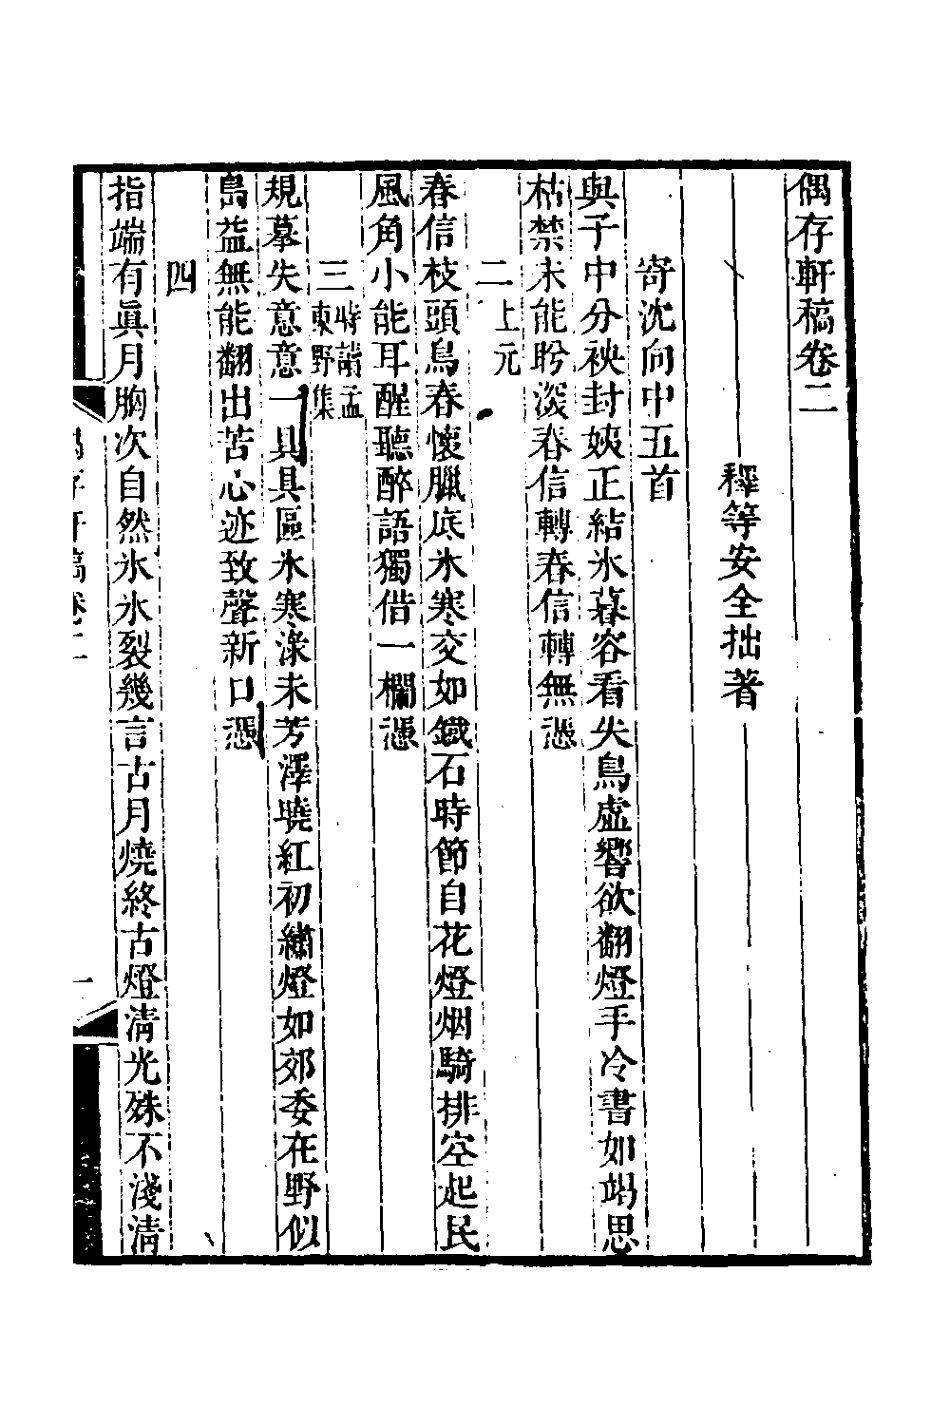 偶存軒稿卷二
釋等安全拙著
寄沈向中五首
與子中分袂封姨正結氷暮容看失鳥虛響欲翻燈手冷書如竭思
枯禁未能盻淡春信轉春信轉無憑
二 上元
春信枝頭鳥春懷臘底氷寒交如鐵石時節自花燈烟騎排空起民
風角小能耳醒聽醉語獨借一欄憑
三 時讀孟東野集
規摹失意意一具具區氷寒淥未芳澤曉紅初繡燈如郊委在野似
島益無能翻出苦心迹致聲新口憑
四
指端有眞月胸次自然氷氷裂幾言古月燒終古燈淸光殊不淺淸
偶存軒稿卷二
一